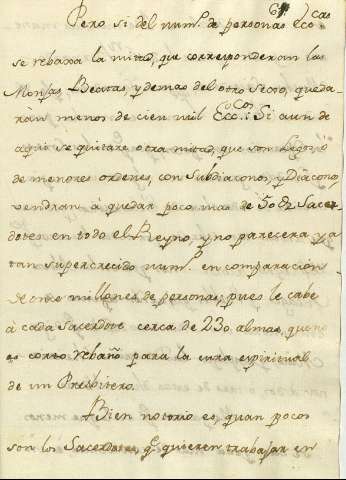 61
Pero si del num.º de personas Ecc.cas
se rebaxa la mitad, que corresponderan las
Monjas Beatas, y demas del otro Sexo, queda-
ran menos de cien mil Ecc.cos: Si aun de
aqui se quitare otra mitad, que son Legos, ò
de menores ordenes, con Subdiaconos, y Diaconos,
vendran à quedar poco mas de 50 Sacer-
dotes en todo el Reyno, y no parecera ya
tan supercrecido num.º en comparacion
de once millones de personas, pues le cabe
à cada Sacerdote cerca de 230 almas, que no
es corto rebaño para la cura espiritual
de un Presbitero.
Bien notorio es, quan pocos
son los Sacerdotes, q.e quieren trabajar en